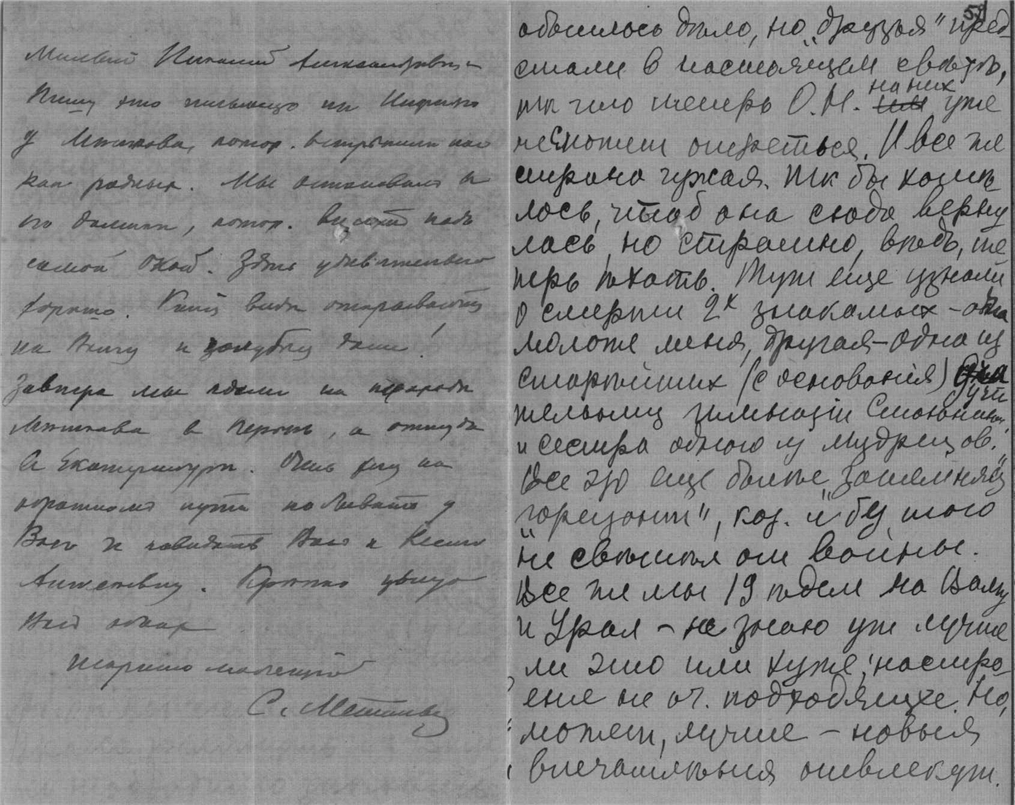 Милый Николай Александрович
Пишу это письмецо из
у Мешкова, котор. встретил нас
как родных. Мы остановились в
его имении, котор. висит надъ
самой Окой. Здесь удивительно
хорошо. виды открываются
на Волгу и голубыя дали!
Завтра мы едем на пароходе
Мешкова в Пермь, а оттуда
в Екатеринбург. Очень хочу на
обратномъ пути побывать у
Васъ и повидать Васъ и
Крепко целую
Васъ обоих

С. Метнеръ
объяснилось дело, но „друзья" пред-
стали в настоящем светѣ,
так что теперь О.Н. на них уже
не сможет опереться. И все же
страна чужая. Так бы хотѣ-
лось, чтоб она сюда верну-
лась, но страшно, вѣдь, те-
перь ѣхать. Тут еще узнали
о смерти 2х знакомых – одна
моложе меня, другая – одна из
старѣйших (с основания) учи-
тельниц гимназіи Стоюниной
и сестра одного из „мудрецов".
Все это еще больше „затемняет
горизонт", кот. и без того
не свѣтел от войны.
Все же мы 19 ѣдем на Волгу
и Урал – не знаю уж лучше
ли это или хуже; настро-
ение не оч. подходящее. Но,
может, лучше – новыя
впечатлѣния отвлекут.